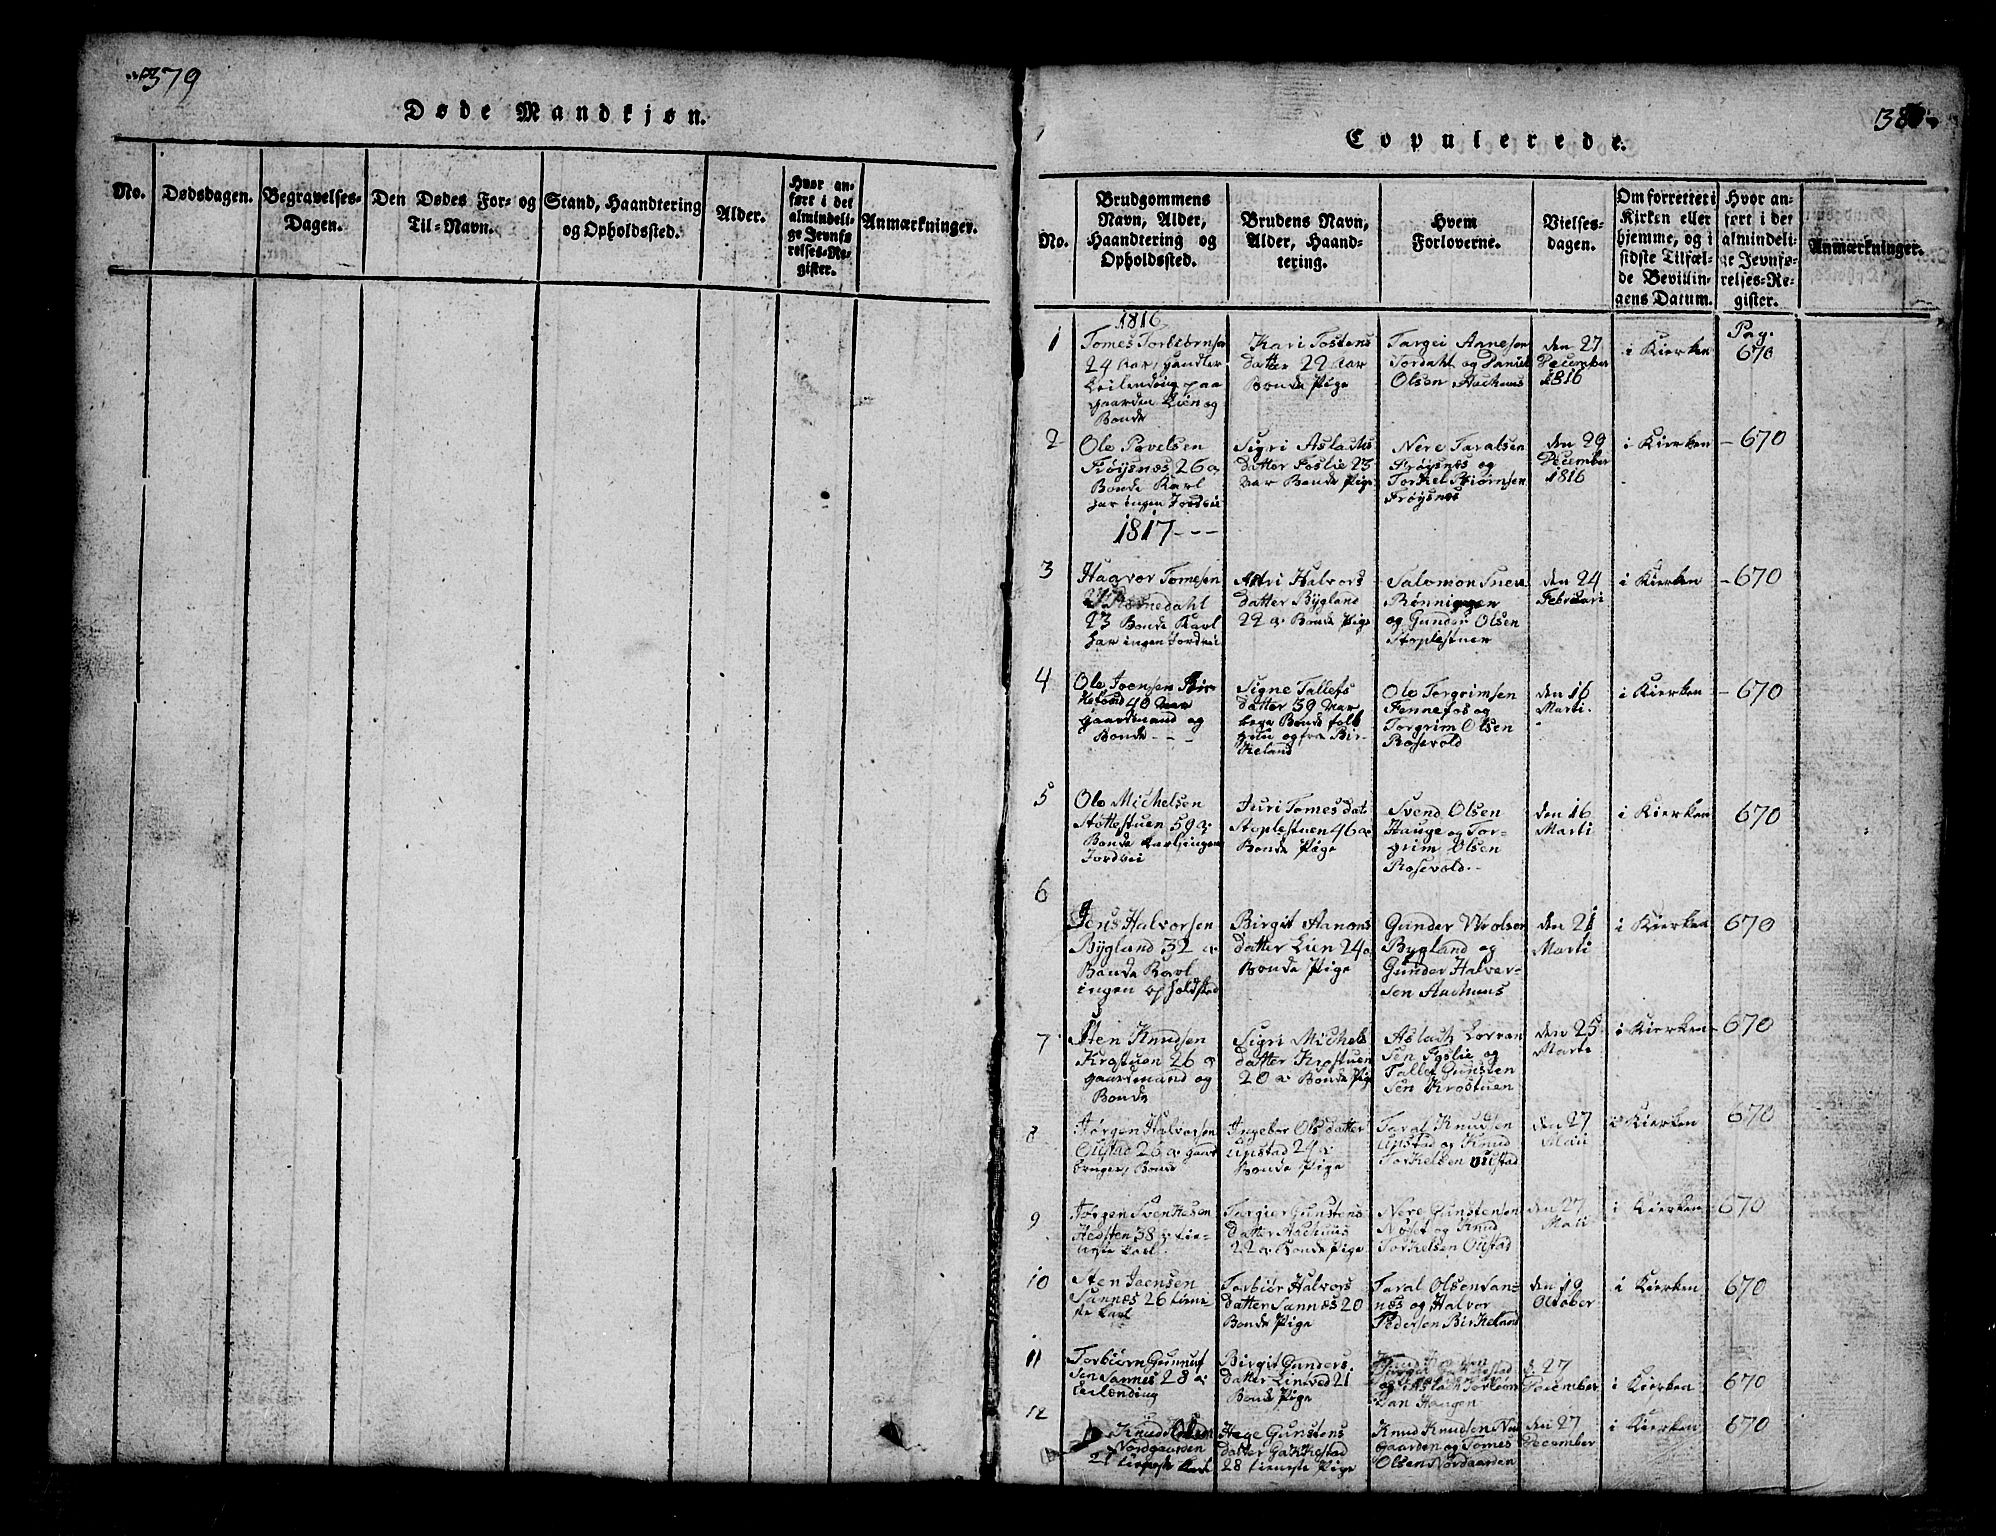 379
Døde Mandkjøn.
No.
Dødsdagen.
Begravelses-
Dagen.
Den Dødes For- og
Til-Navn.
Stand, Haandtering
og Opholdssted.
Alder.
Hvor an-
ført i det
almindeli-
ge Jevnfø-
relses-Re-
gister.
Anmærkninger.
Copulerede.
No.
Brudgommens
Navn, Alder,
Haandtering og
Opholdssted.
Brudens Navn,
Alder, Haand-
tering.
Hvem
Forloverne.
Vielses-
dagen.
Om forrettet i
Kirken eller
hjemme, og i
sidste Tilfæl-
de Bevillin-
gens Datum.
Hvor an-
ført i det
almindeli-
ge Jevnfø-
relses-Re-
gister.
Anmærkninger.
1816
1
Tomes Torbiørnsen
24 Aar, Handler
Leilending paa
gaarden Lien og
Bonde
Kari Tostens
datter 22 Aar
Bonde Pige
Targei Aanesen
Jordahl og Daniel
Olsen Aachuus
den 27
December
1816
i Kierken
Pag.
670
2
Ole Povelsen
Frøysnæs 26 a
Bonde Karl
har ingen Jordvei
Sigri Aslachs
datter Foslie 23
Aar Bonde Pige
Nere Taralsen
Frøysnæs og
Torkel Biørnsen
Frøysnæs
den 29
December
1816
i Kierken
- 670
1817 ---
3
Haavor Tomesen
23 Bonde Karl
har ingen Jordvei
Astri Halvors
datter Bygland
22 a. Bonde Pige
Salomon
Rønningen
og Gunder Olsen
Stoplestuen
den 24
Februari
i Kierken
- 670
4
Ole Joensen Bir-
keland 40 Aar
gaardmand og
Bonde - - -
Signe Tallefs
datter 59 Aar
Bonde folk
og fra Bir-
keland
Ole Torgrimsen
Fennefos og
Torgrim Olsen
Rosevold
den 16
Marti.
i Kierken
- 670
5
Ole Michelsen
Støttestuen 59 a
Bonde Karl, ingen
Jordvei
Juri Tomes dat
Stoplestuen 46 a
Bonde Pige
Svend Olsen
Hauge og Tor-
grim Olsen
Rosevold.
den 16
Marti
i Kierken
670
6
Jens Halvorsen
Bygland 32 a
Bonde Karl
ingen opholdsted
Birgit Aanons
datter Lien 24 a
Bonde Pige
Gunder Wrolsen
Bygland og
Gunder Halvor-
sen Aachuus
den 21
Marti
i Kierken
670
7
Sten Knudsen
Krostuen 26 a
gaardmand og
Bonde
Sigri Michels
datter Krostuen
20 a Bonde Pige
Aslach
sen Foslie og
Tallef Gunsten
sen Krostuen
den 25
Marti
i Kierken
- 670
8
Jørgen Halvorsen
Oustad 26 a gaard
bruger, Bonde
Ingebor Olsdatter
upstad 24 a
Bonde Pige
Taral Knudsen
upstad og Knud
Torkelsen oustad
den 27
Maii
i Kierken
670
9
Jørgen Svenkesen
Hedsten 38 a tie-
neste Karl
Targier Gunstens
datter Aachuus
22 a Bonde Pige
Nere Gunstensen
Næset og Knud
Torkelsen Oustad
den 27
Maii
i Kierken
- 670
10
Sten Joensen
Sannæs 26 tiene-
ste Karl
Torbiør Halvors
datter Sannæs 20
Bonde Pige
Taral Olsen San-
næs og Halvor
Pedersen Birkeland
den 19
October
i Kierken
670
11
Torbiørn Gunnuf
sen Sannæs 28 a
Leilending
Birgit Gunders
datter Lintved 21
Bonde Pige
og Aslach Torbiørn
Dan Haugen
d. 27
December
i Kierken
670
12
Knud Olsen
Nordgaarden
tieneste Karl
Hæge Gunstens
datter Gakkestad
28 tieneste Pige
Knud Knudsen Nor
gaarden og Tomes
Olsen Nordgaarden
den 27
December
i Kierken
670